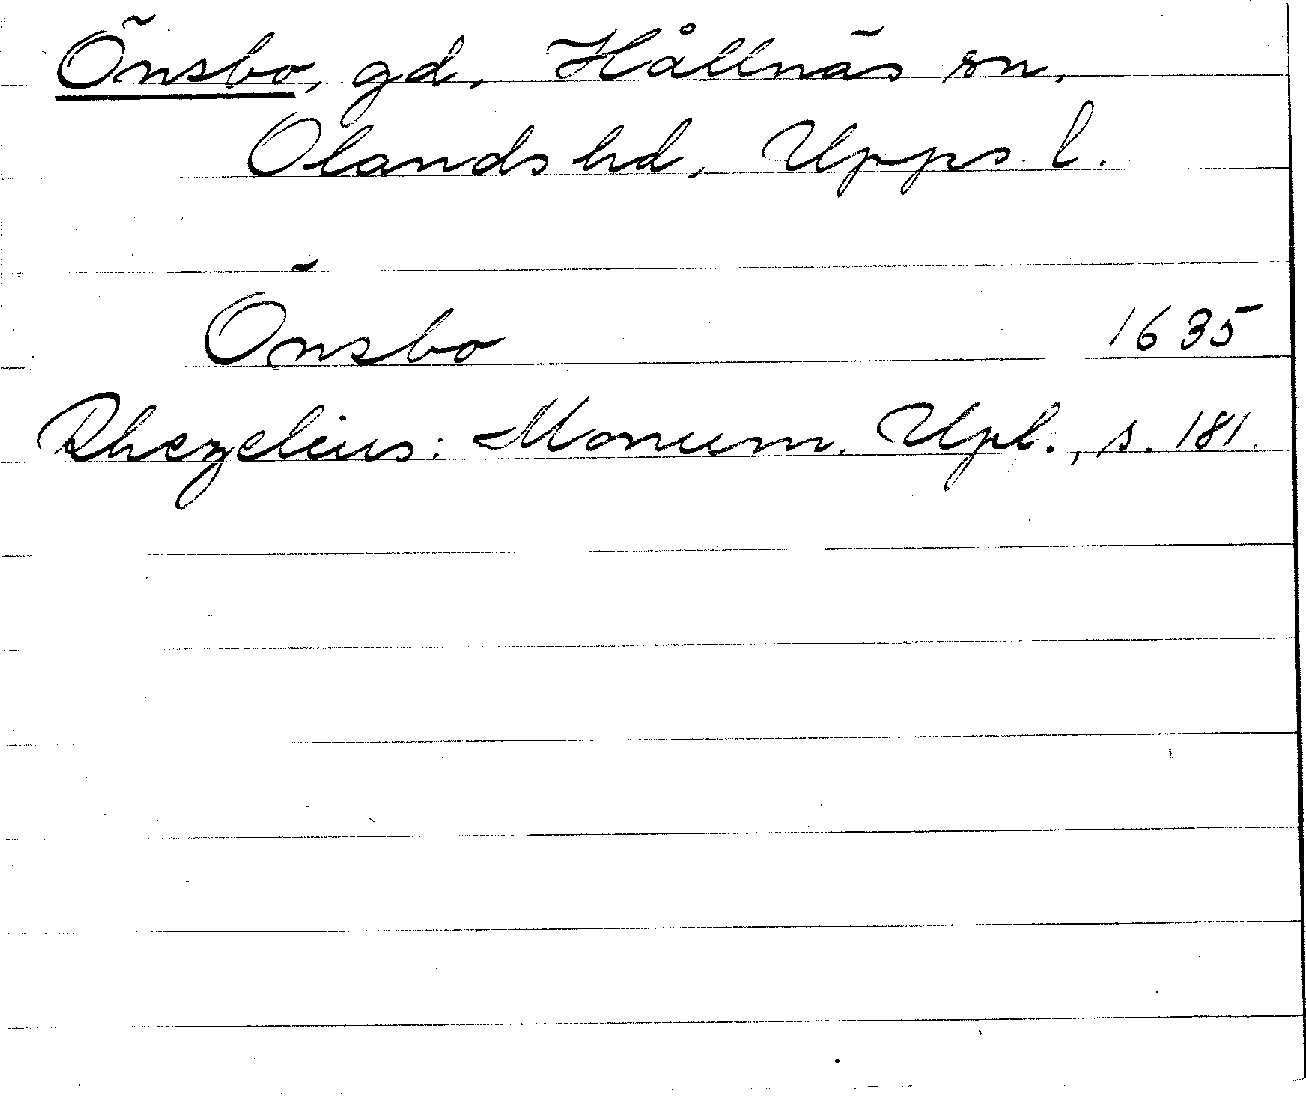 Önsbo, gd, Hållnäs sn,
Olands hd, Upps. l.
Önsbo 1635
Rhezelius: Monum. Upl., s. 181.